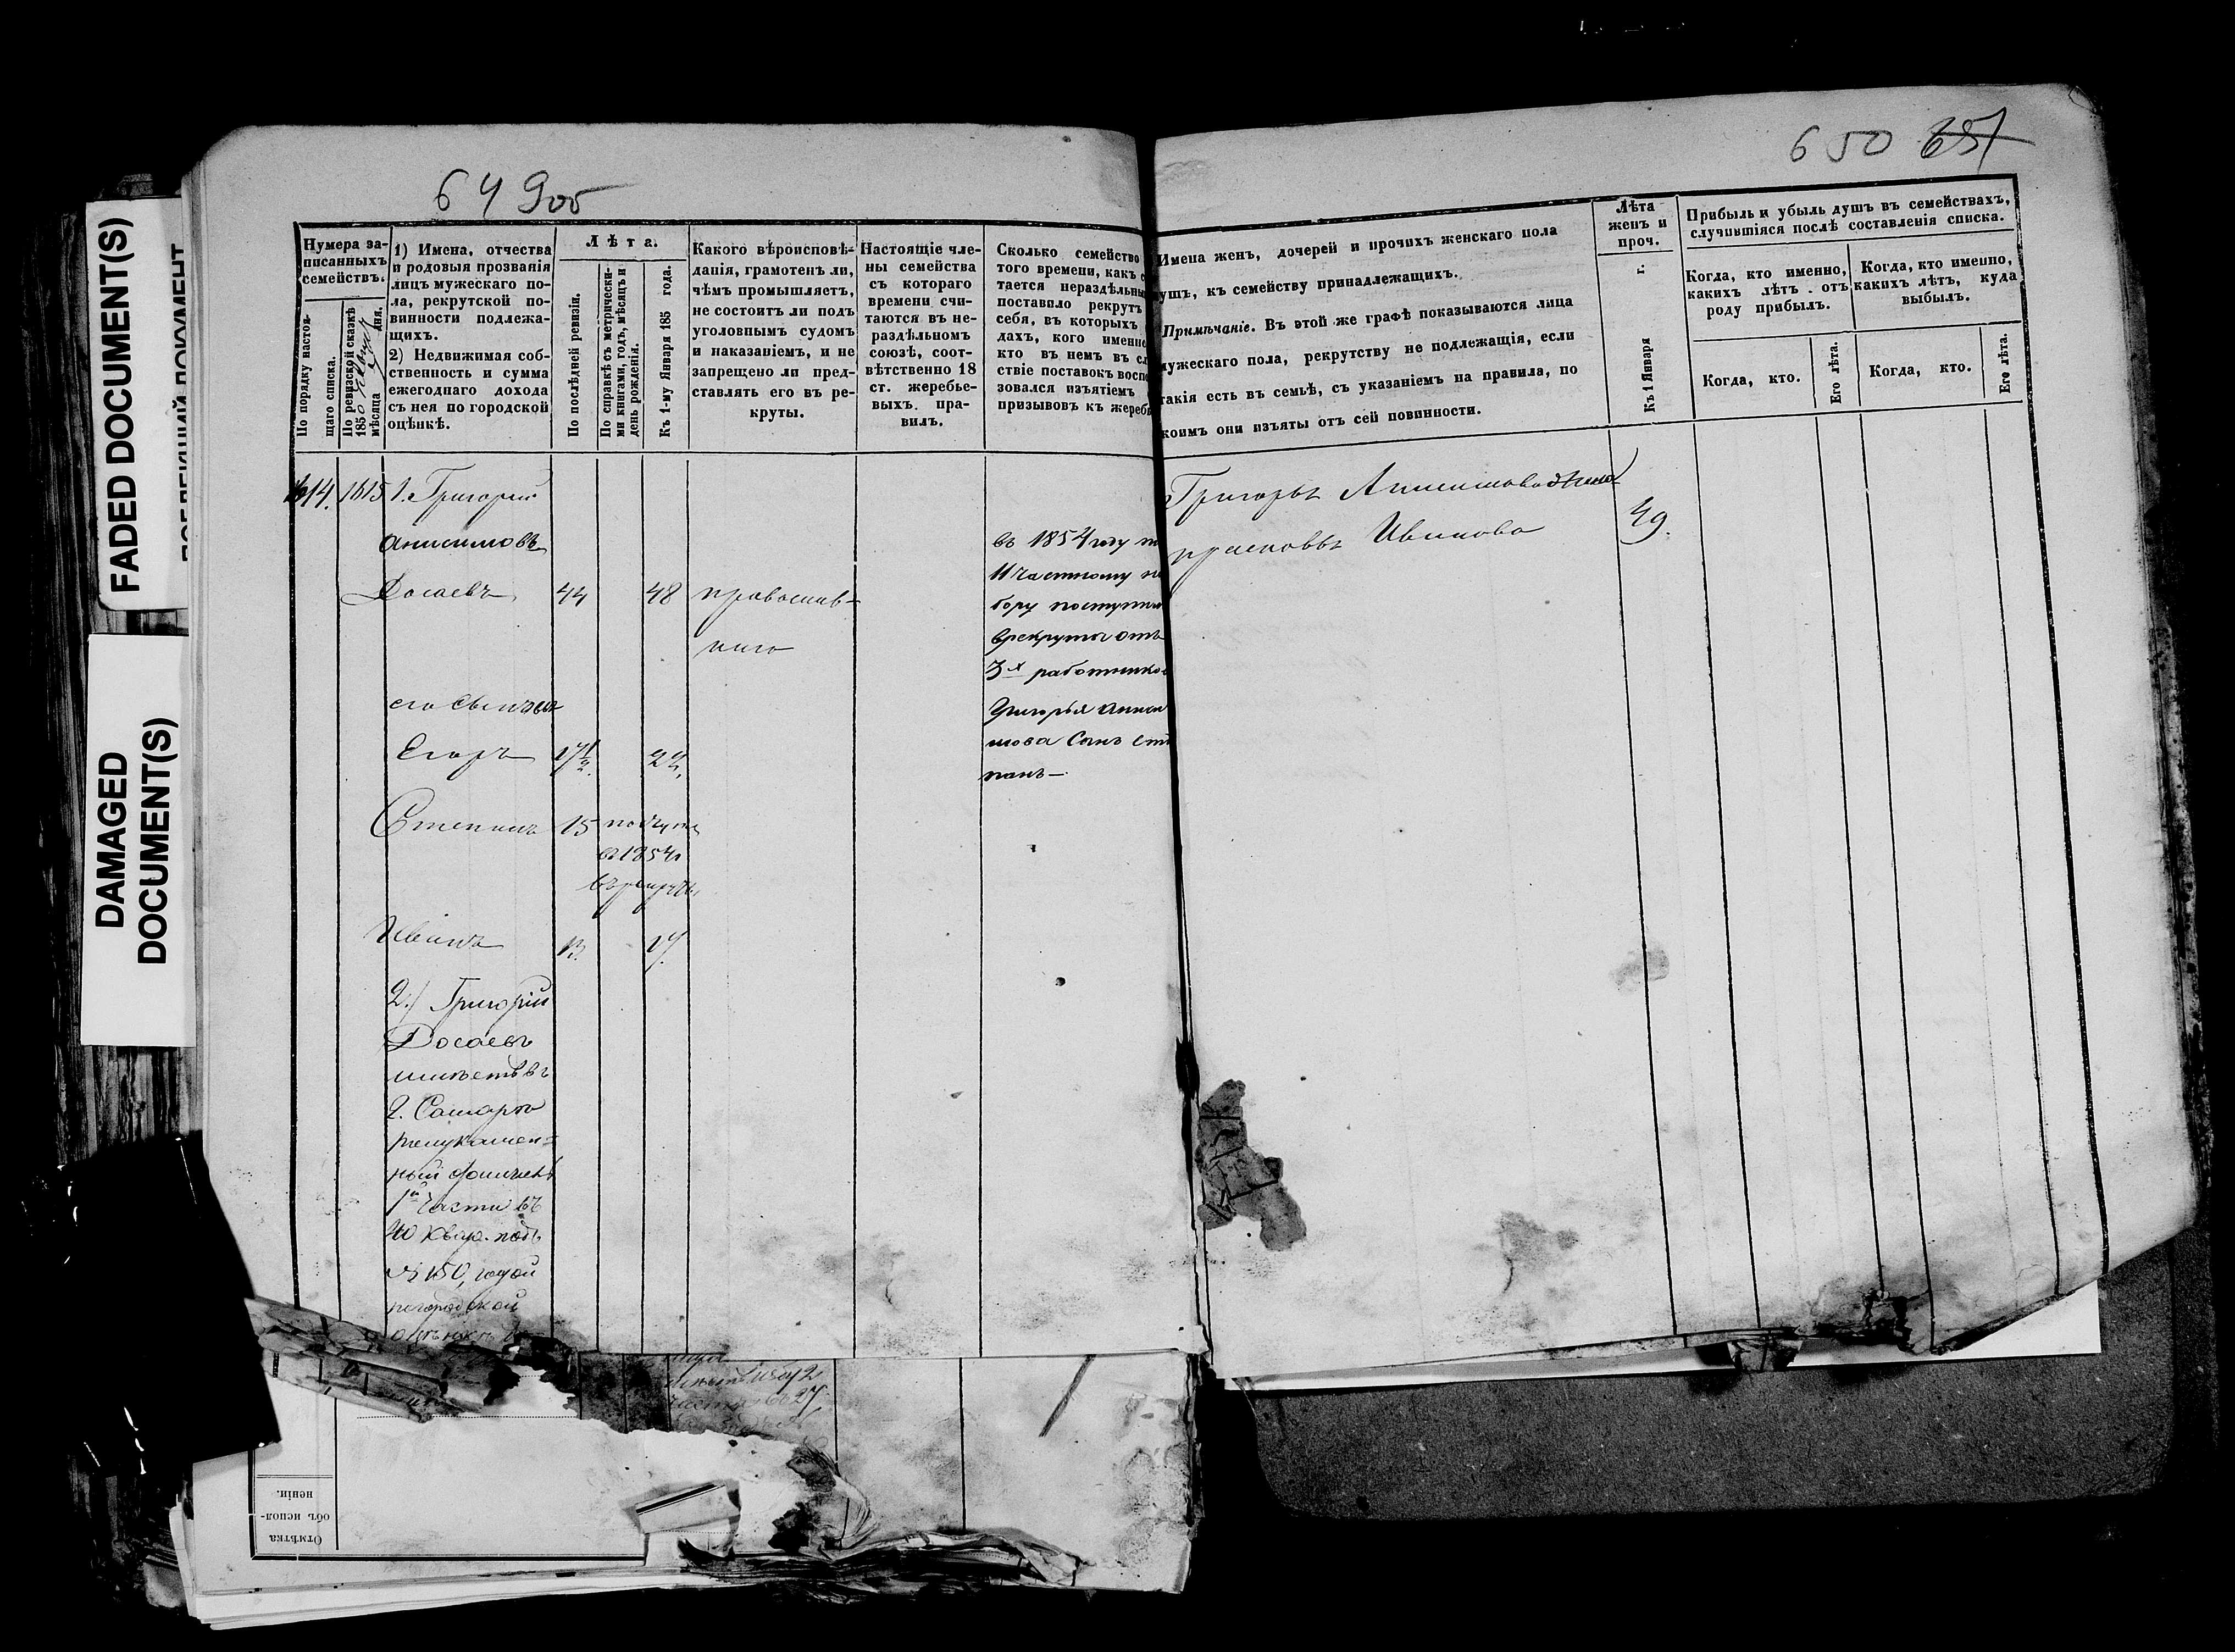 FADED DOCUMENT(S)
DAMAGED
DOCUMENT(S)
649 об
Нумера за-
писанныхъ
семействъ.
По порядку настоя-
щаго списка.
По ревизской сказкѣ
1850
мѣсяца дня.
1) Имена, отчества
и родовыя прозванія
лицъ мужескаго по-
ла, рекрутской по-
винности подлежа-
щихъ.
2) Недвижимая соб-
ственность и сумма
ежегоднаго дохода
съ нея по городской
оцѣнкѣ.
Лѣта.
По послѣдней ревизіи.
По справкѣ съ метрически-
ми книгами, годъ, мѣсяцъ и
день рожденія.
Къ 1-му Января 185 года.
Какого вѣроисповѣ-
данія, грамотенъ ли,
чѣмъ промышляетъ,
не состоитъ ли подъ
уголовнымъ судомъ
и наказаніемъ, и не
запрещено ли пред-
ставлять его въ ре-
круты.
Настоящіе чле-
ны семейства
съ котораго
времени счи-
таются въ не-
раздѣльномъ
союзѣ, соот-
вѣтственно 18
ст. жеребье-
выхъ пра-
вилъ.
Сколько семейство
того времени, какъ с
тается нераздѣльны
поставило рекрутъ
себя, въ которыхъ
дахъ, кого именно
кто въ немъ въ сл
ствіе поставокъ воспо
зовался изъятіемъ
призывовъ къ жереб
1614. 1615 1. Григорій
Анисимовъ
Досаевъ 44 48 православ-
наго
его сыновья
Егоръ 17½ 22.
Степанъ 15 поступ.
въ 1854 г
въ рекруты
Иванъ 13. 17.
2.) Григорій
Досаевъ
имѣетъ въ
г. Самарѣ
полукамен-
ный
1й части въ
40 квар. подъ
№ 150,
по городской
оцѣнкѣ
въ 1854 году по
11 частному на
бору поступил
в рекруты отъ
3х работников
Григорья Аниси
мова сынъ Сте
панъ —
Отмѣтка
объ испол-
неніи.
650 651
Имена женъ, дочерей и прочихъ женскаго пола
ушъ, къ семейству принадлежащихъ.
Примѣчаніе. Въ этой же графѣ показываются лица
мужескаго пола, рекрутству не подлежащія, если
такія есть въ семьѣ, съ указаніемъ на правила, по
коимъ они изъяты отъ сей повинности.
Лѣта
женъ и
проч.
Къ 1 Января г.
Прибыль и убыль душъ въ семействахъ,
случившіяся послѣ составленія списка.
Когда, кто именно,
какихъ лѣтъ отъ
роду прибылъ.
Когда, кто именно,
какихъ лѣтъ, куда
выбылъ.
Когда, кто.
Его лѣта.
Когда, кто.
Его лѣта.
Григорья Анисимова жена
Прасковья Иванова 49.